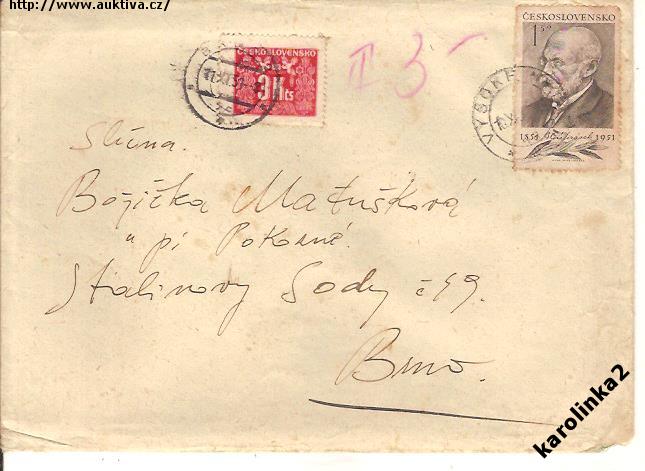 http://www.auktiva.cz/
ČESKOSLOVENSKO
3 Kčs
T 3-
ČESKOSLOVENSKO
1 50
VYSOKÉ
1851 A. Jirásek 1951
Slečna.
Božička Matušková
u pí Pokorné.
Stalinovy Sady č 49.
Brno.
karolinka2